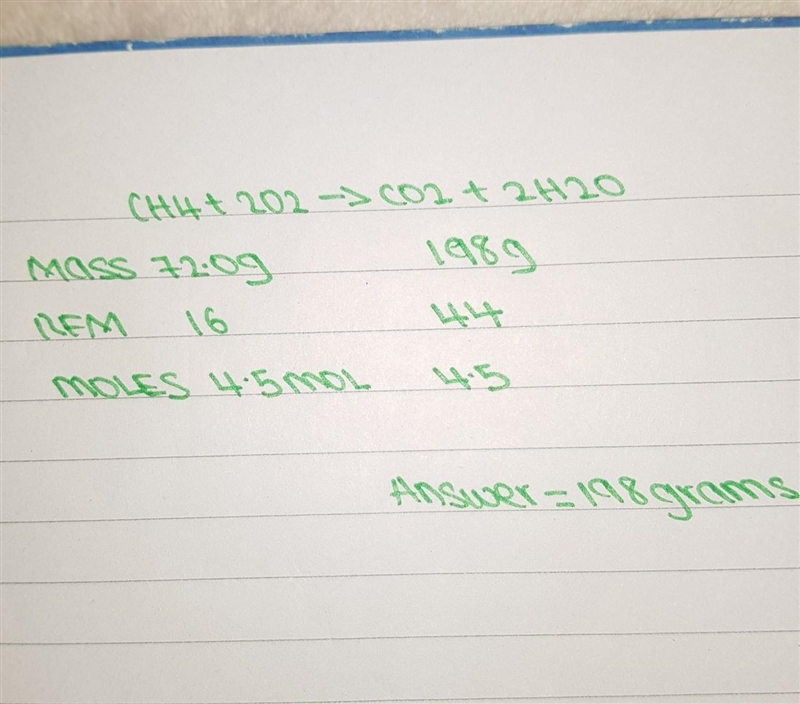 CH4 + 2O2 -> CO2 + 2H2O
MASS 72.0g 198g
RFM 16 44
MOLES 4.5MOL 4.5
Answer = 198grams